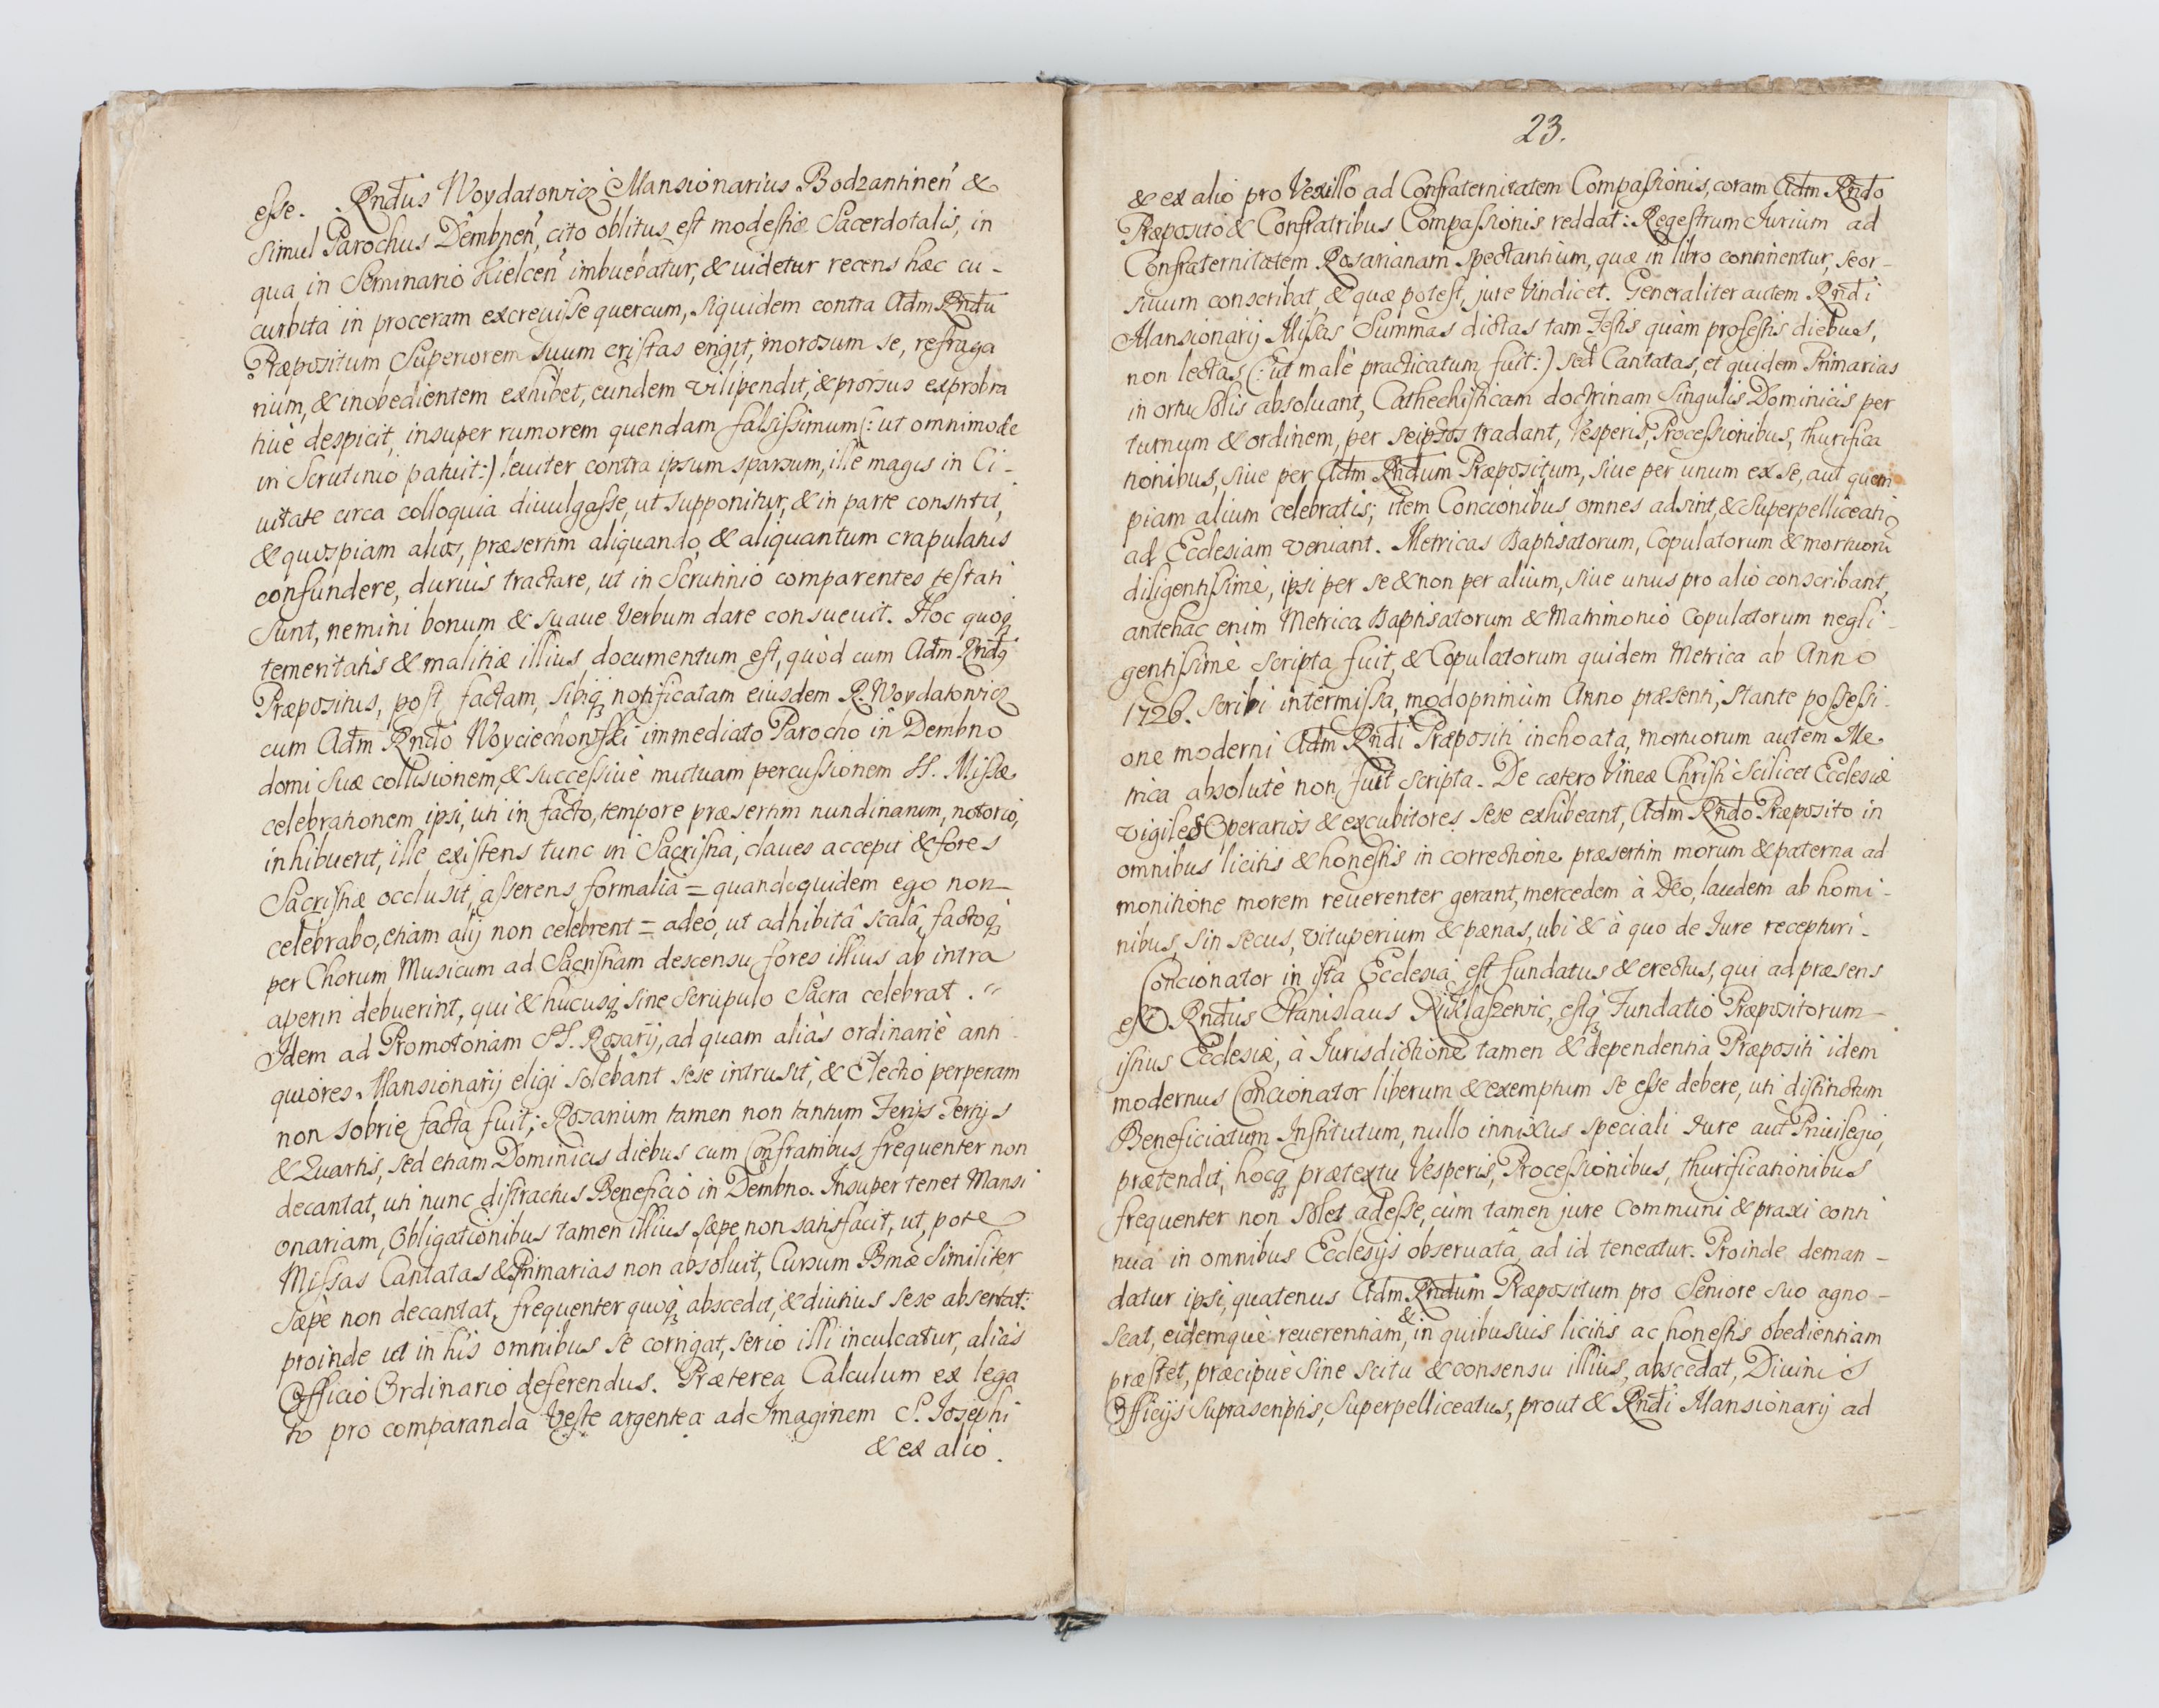 esse. Rndus Woydatowicz Mansionarius Bodzantinen &
simul Parochus Dembnen, cito oblitus est modestiæ Sacerdotalis, in
qua in Seminario Kielcen imbuebatur, & uidetur recens hæc cu-
curbita in proceram excreuisse quercum, siquidem contra Adm Rndu
Præpositum Superiorem suum cristas erigit, morosum se, refraga
rium, & inobedientem exhibet, eundem vilipendit, & prorsus exprobra
tiuè despicit, insuper rumorem quendam falsissimum (: ut omnimode
in Scrutinio patuit:) leuiter contra ipsum sparsum, ille magis in Ci-
uitate circa colloquia diuulgasse, ut supponitur, & in parte constitit,
& quospiam alios, præsertim aliquando, & aliquantum crapulatus
confundere, durius tractare, ut in Scrutinio comparentes testati
sunt, nemini bonum & suaue verbum dare consueuit. Hoc quoq
temeritatis & malitiæ illius documentum est, quòd cum Adm Rndq
Præpositus, post factam, sibiq notificatam eiusdem R. Woydatowicz
cum Adm Rndo Woyciechowski immediato Parocho in Dembno
domi suæ collisionem, & successiuè mutuam percussionem SS. Missæ
celebrationem ipsi, uti in facto, tempore præsertim nundinarum, notorio,
inhibuerit, ille existens tunc in Sacristia, claues accepit & fores
Sacristiæ occlusit, asserens formalia = quandoquidem ego non
celebrabo, etiam alij non celebrent = adeo, ut adhibitâ scalâ, factoq
per Chorum Musicum ad Sacristiam descensu fores illius ab intra
aperiri debuerint, qui & hucusq sine scrupulo Sacra celebrat.
Idem ad Promotoriam SS. Rosarij, ad quam aliàs ordinariè anti
quiores Mansionarij eligi solebant sese intrusit, & Electio perperam
non sobrie facta fuit; Rosarium tamen non tantum Ferijs Tertijs
& Quartis, sed etiam Dominicis diebus cum Confratribus frequenter non
decantat, uti nunc distractus Beneficio in Dembno. Insuper tenet Mansi
onariam, Obligationibus tamen illius sæpe non satisfacit, ut pote
Missas Cantatas & Primarias non absoluit, Cursum Bmæ similiter
sæpè non decantat, frequenter quoq abscedit, & diutius sese absentat:
proinde ut in his omnibus se corrigat, serio illi inculcatur, aliàs
Officio Ordinario deferendus. Præterea Calculum ex lega
to pro comparanda Veste argentea ad Imaginem S. Josephi
& ex alio.
23.
& ex alio pro Vexillo ad Confraternitatem Compassionis, coram Adm Rndo
Præposito & Confratribus Compassionis reddat: Regestrum Jurium ad
Confraternitatem Rosarianam spectantium, quæ in libro continentur, seor-
siuum conscribat, & quæ potest, jure vindicet. Generaliter autem Rndi
Mansionarij Missas Summas dictas tam Festis quàm profestis diebus,
non lectas (: ut malè practicatum fuit:) sed Cantatas, et quidem Primarias
in ortu Solis absoluant, Cathechisticam doctrinam Singulis Dominicis per
turnum & ordinem, per seipsos tradant, Vesperis, Processionibus, thurifica
tionibus, siue per Adm Rndum Præpositum, siue per unum ex se, aut quem
piam alium celebratis; item Concionibus omnes adsint, & Superpelliceati
ad Ecclesiam veniant. Metricas Baptisatorum, Copulatorum & mortuoru
diligentissimè, ipsi per se & non per alium, siue unus pro alio conscribant,
antehac enim Metrica Baptisatorum & Matrimonio Copulatorum negli-
gentissimè scripta fuit, & Copulatorum quidem Metrica ab Anno
1726. scribi intermissa, modoprimùm Anno præsenti, stante possessi-
one moderni Adm Rndi Præpositi inchoata, mortuorum autem Me-
trica absolutè non fuit scripta. De cætero Vineæ Christi scilicet Ecclesiæ
vigiles Operarios & excubitores sese exhibeant, Adm Rndo Præposito in
omnibus licitis & honestis in correctione præsertim morum & paterna ad
monitione morem reuerenter gerant, mercedem à Deo, laudem ab homi-
nibus, sin secus, vituperium & pænas, ubi & à quo de Jure recepturi-
Concionator in ista Ecclesia est fundatus & erectus, qui ad præsens
est Rndus Stanislaus Niklaszewic, estq Fundatio Præpositorum
istius Ecclesiæ, à Jurisdictione tamen & dependentia Præpositi idem
modernus Concionator liberum & exemptum se esse debere, uti distinctum
Beneficiatum Institutum, nullo innixus speciali Jure aut Priuilegio,
prætendit, hocq prætextu Vesperis, Processionibus, thurificationibus
frequenter non solet adesse, cùm tamen jure communi & praxi conti
nua in omnibus Ecclesijs obseruatâ ad id teneatur. Proinde deman-
datur ipsi, quatenus Adm Rndum Præpositum pro Seniore suo agno-
scat, eidemque reuerentiam, & in quibusuis licitis ac honestis obedientiam
præstet, præcipuè sine scitu & consensu illius, abscedat, Diuinis
Officijs suprascriptis, Superpelliceatus, prout & Rndi Mansionarij ad